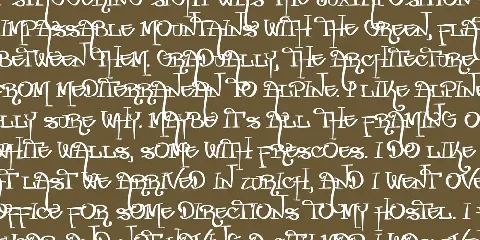 SIGHT WAS THE JUXTAPOSITION
IMPASSABLE MOUNTAINS WITH THE GREEN, FLA
BETWEEN THEM. GRADUALLY, THE ARCHITECTURE
FROM MEDITERRANEAN TO ALPINE. I LIKE ALPINE
LLY SURE WHY. MAYBE IT'S ALL THE FRAMING O
WHITE WALLS, SOME WITH FRESCOES. I DO LIKE
T LAST WE ARRIVED IN ZURICH, AND I WENT OVE
OFFICE FOR SOME DIRECTIONS TO MY HOSTEL. I